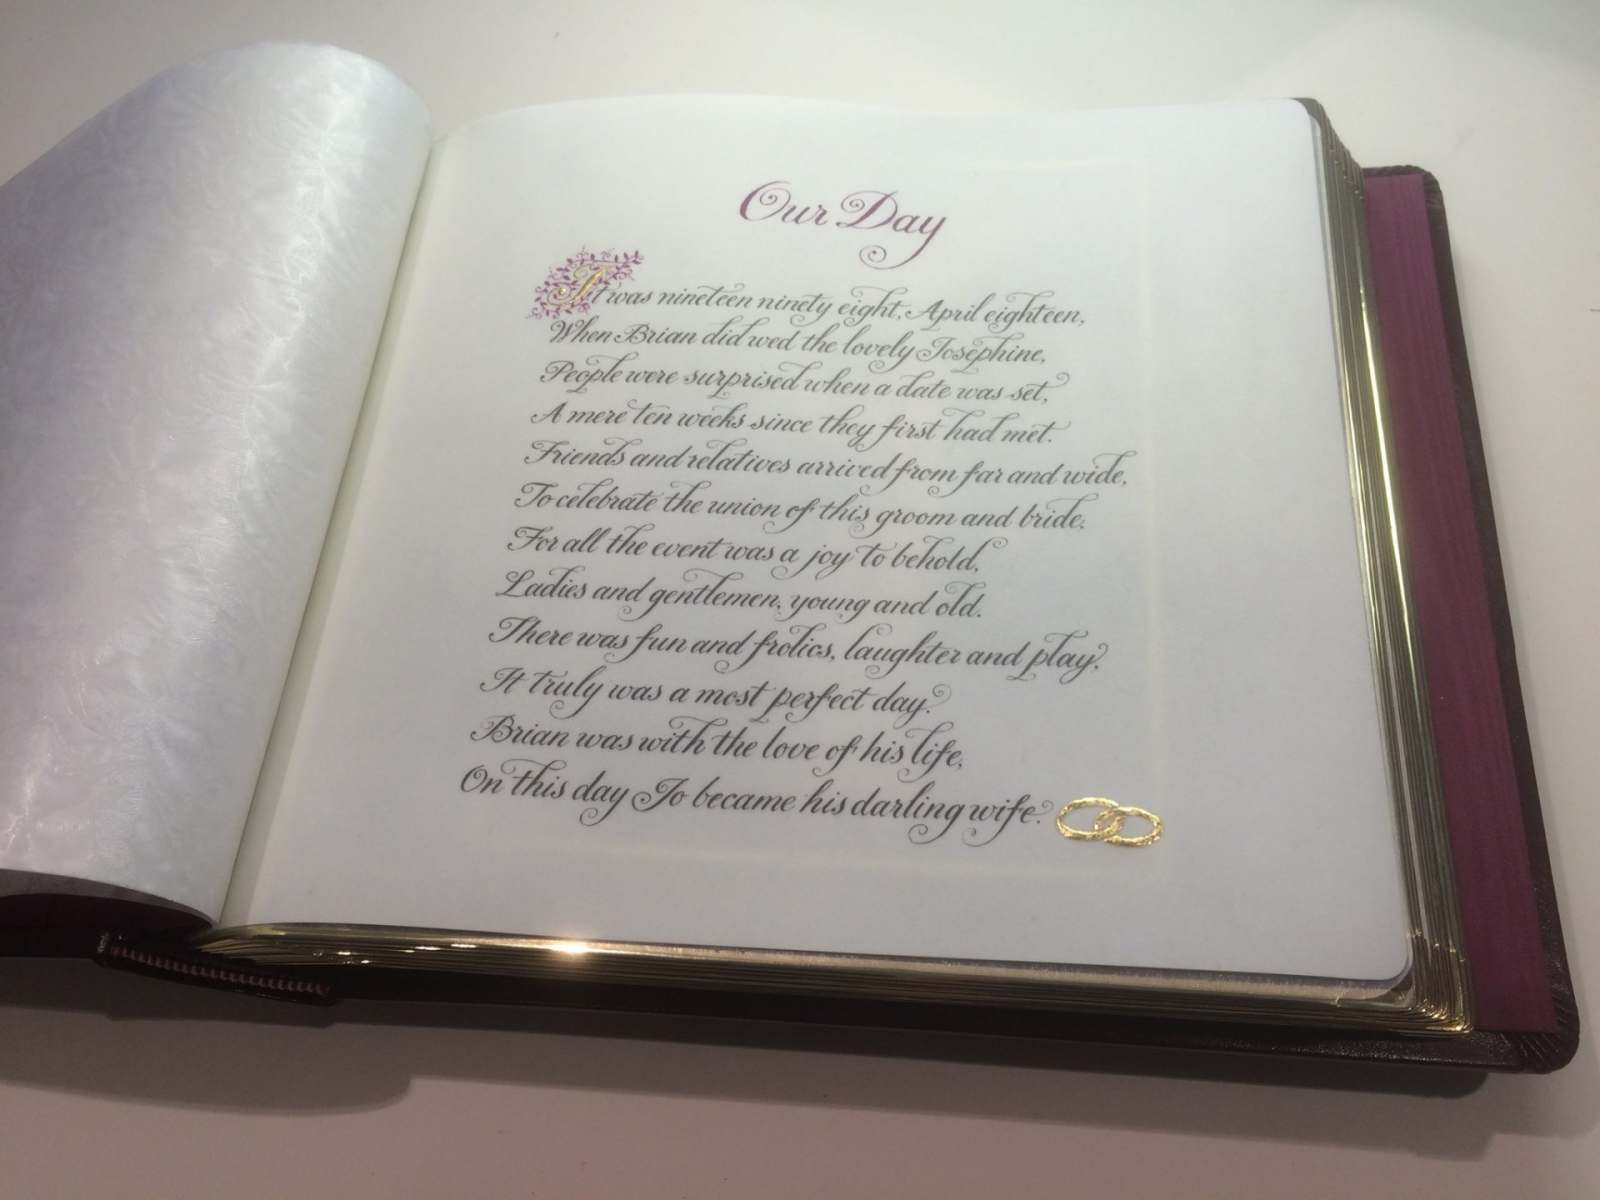 Our Day
It was nineteen ninety eight, April eighteen,
When Brian did wed the lovely Josephine,
People were surprised when a date was set,
A mere ten weeks since they first had met.
Friends and relatives arrived from far and wide,
To celebrate the union of this groom and bride;
For all the event was a joy to behold,
Ladies and gentlemen, young and old.
There was fun and frolics, laughter and play,
It truly was a most perfect day.
Brian was with the love of his life,
On this day Jo became his darling wife.